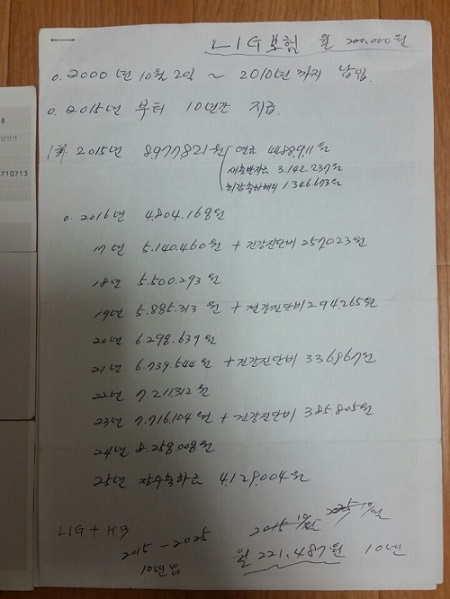 LIG보험 월 200,000원
0. 2000년 10월 2일 ~ 2010년 까지 납입
0. 2015년 부터 10년간 지급
2015년 8,977,821원 연금 4,489,911원
3,142,237원
1,346,673원
0. 2016년 4,804,168원
17년 5,140,460원 + 건강진단비 257,023원
18년 5,500,293원
19년 5,885,313원 + 건강진단비 294,265원
20년 6,298,639원
21년 6,739,544원 + 건강진단비 336,867원
22년 7,211,312원
23년 7,716,104원 + 건강진단비 385,805원
24년 8,258,008원
25년 장수축하금 4,129,004원
LIG + KB
2015 - 2025
10년
월 221,487원 10년
710713